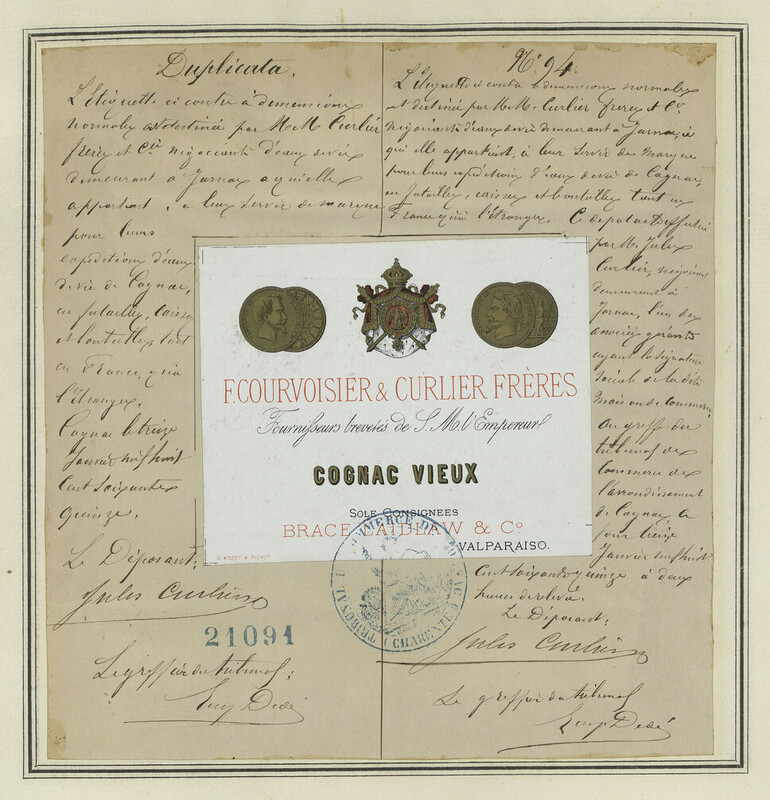 Duplicata.
L'Etiquette ci contre à demensions
normales est destinée par M.M. Curlier
frères et Cie négociants d'eaux de vie
demeurant à Jarnac a qu'elle
appartient, a leur servir de marque
pour leurs
expeditions d'eaux
de vie de Cognac,
en futailles, caisses
et bouteilles tant
en France qu'à
l'étranger.
Cognac le treize
Janvier mil huit
cent soixante
quinze.
Le Déposant,
Jules Curlier
21091
Le greffier du tribunal,
Dédé
No 94
L'étiquette ci contre à dimensions normales
est destinée par M.M. Curlier frères et Cie
négociants d'eaux de vie demeurant à Jarnac, à
qui elle appartient, à leur servir de marque
pour leurs expeditions d'eaux de vie de Cognac,
en futailles, caisses et bouteilles tant en
France qu'à l'étranger. Ce depot a été effectué
par M. Jules
Curlier, négociant
demeurant à
Jarnac, l'un des
associés gérants
ayant la signature
sociale de la dite
maison de commerce
au greffe du
tribunal de
Commerce de
l'arrondissement
de Cognac, le
jour treize
Janvier mil huit
cent soixante quinze à deux
heures de relevée.
Le Déposant,
Jules Curlier
Le greffier du tribunal
Dédé
F. COURVOISIER & CURLIER FRÈRES
Fournisseurs brevetés de S. M. l'Empereur
COGNAC VIEUX
SOLE CONSIGNEES
BRACE LAIDLAW & Co
VALPARAISO.
TRIBUNAL DE COMMERCE DE COGNAC (CHARENTE)